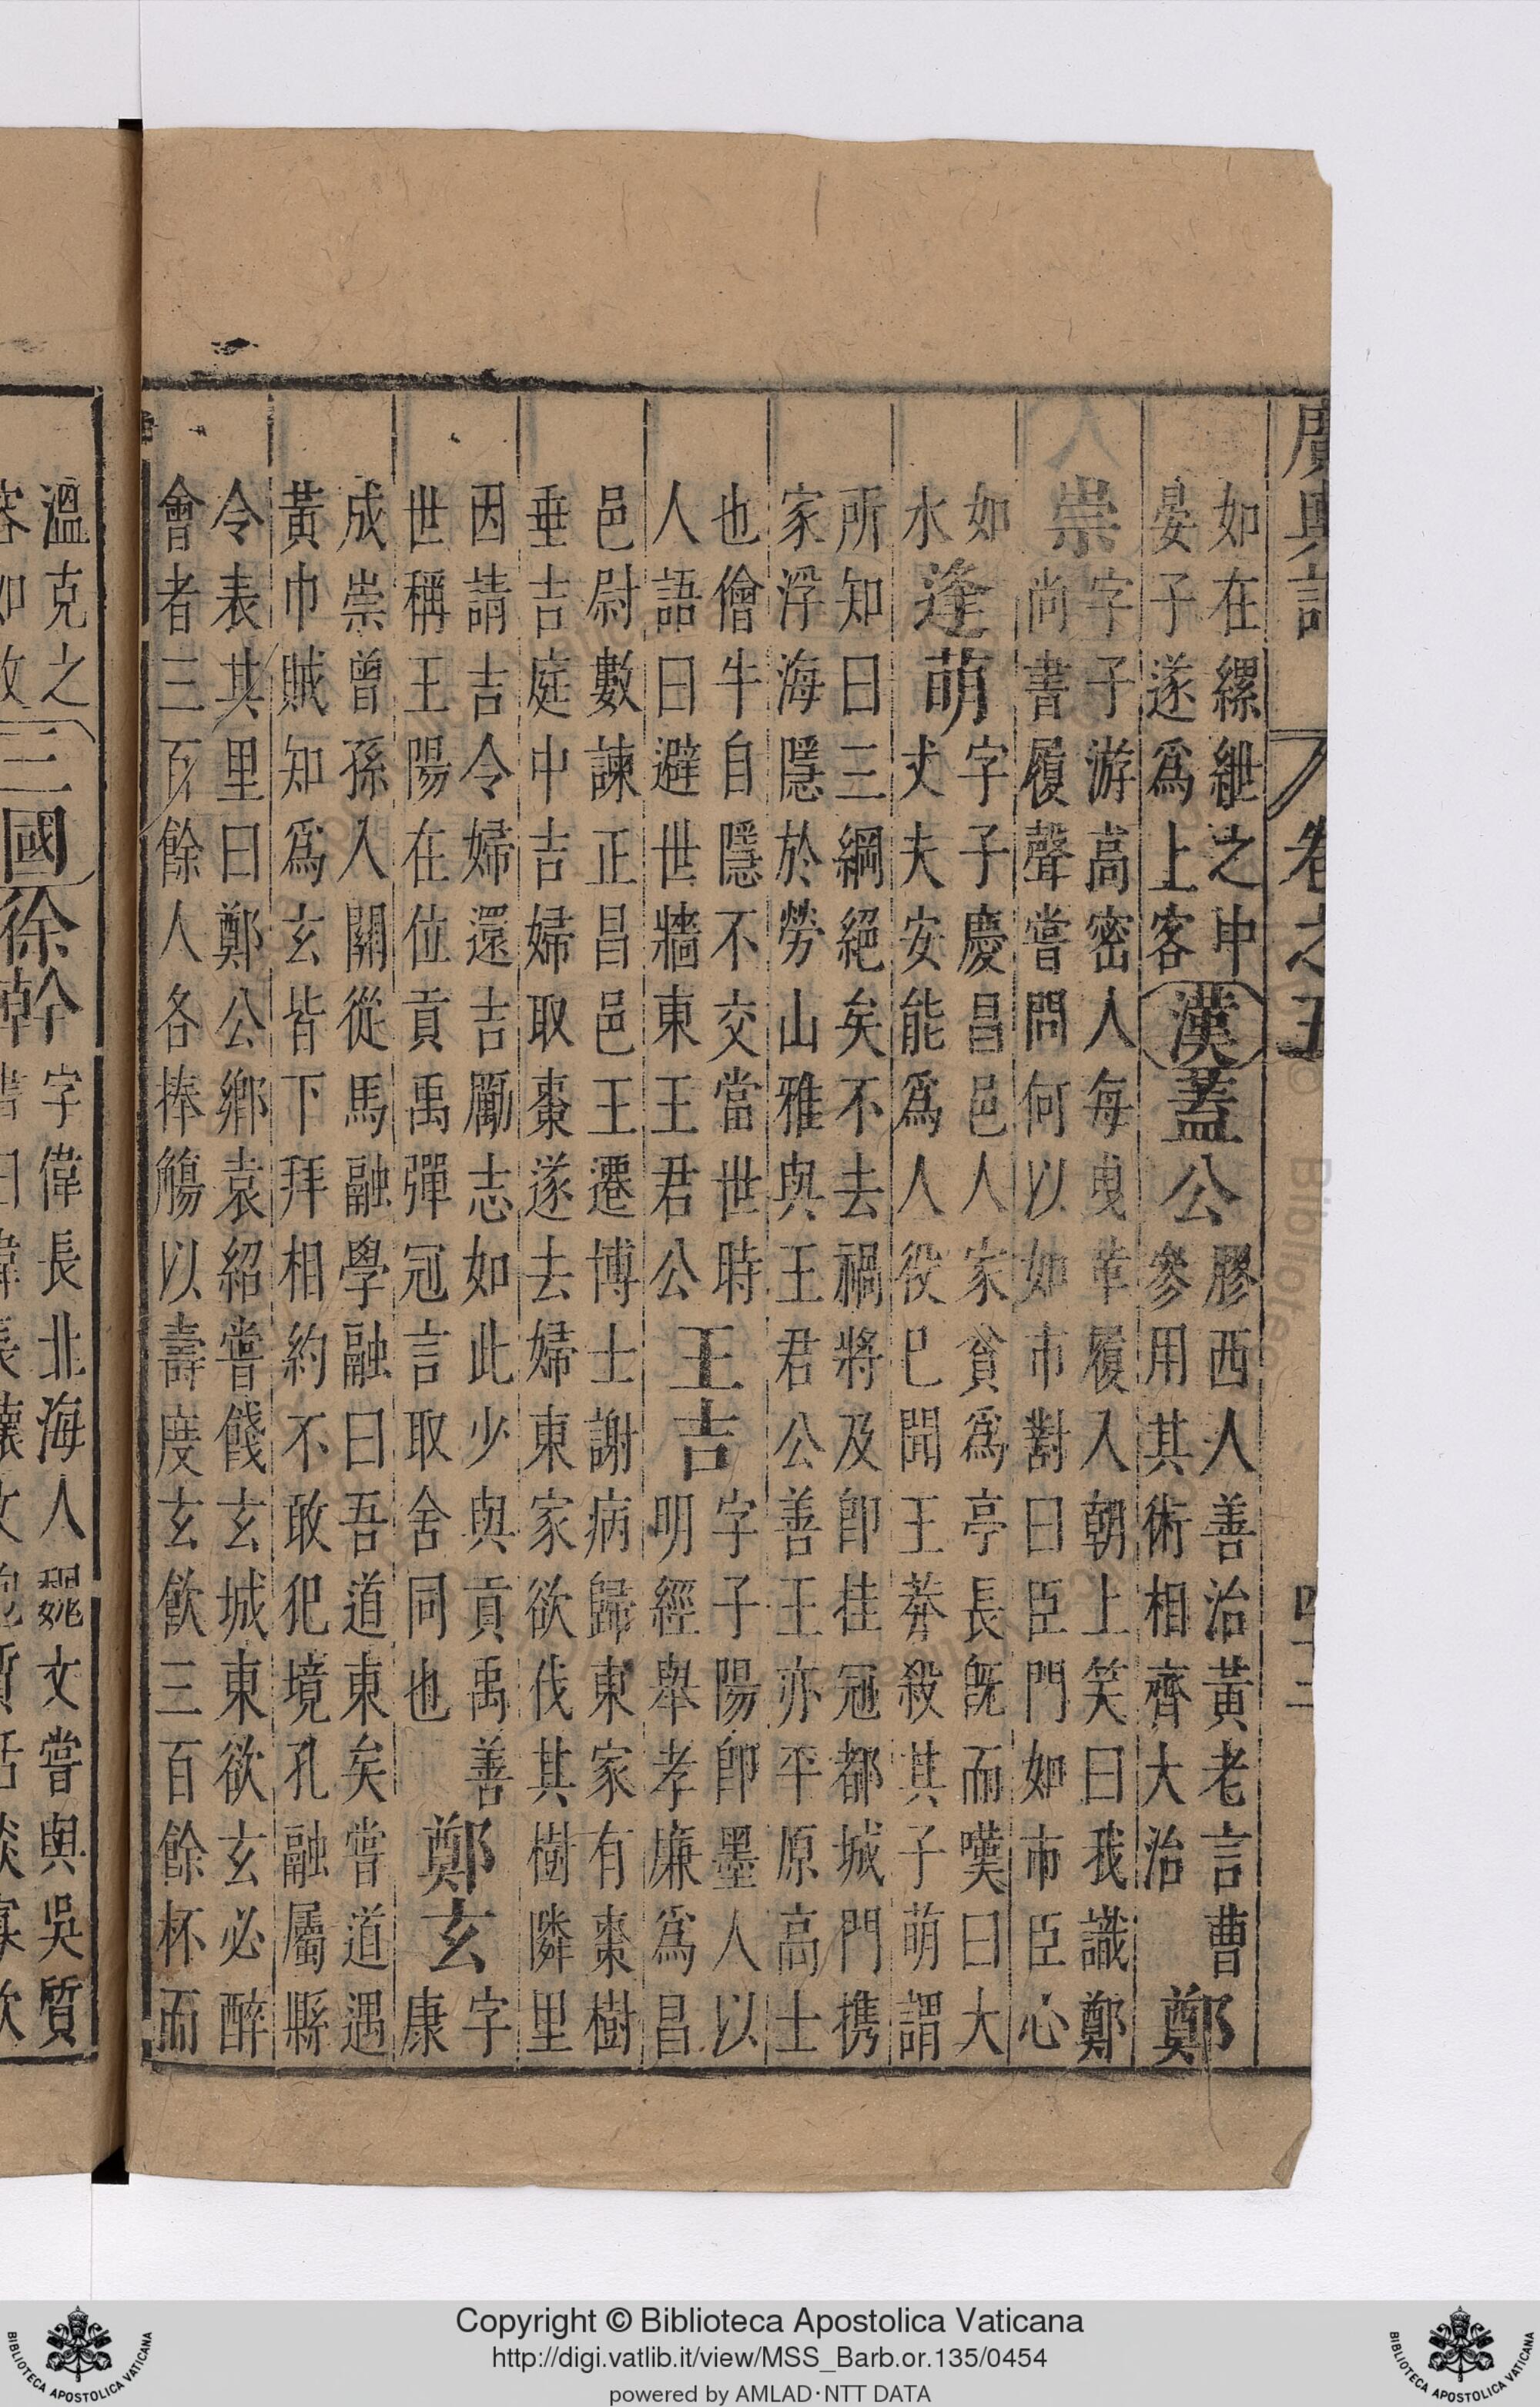 廣輿記 卷之五 四十二
如在縲紲之中
晏子遂爲上客
漢
蓋公
膠西人善治黃老言曹
參用其術相齊大治
鄭
崇
字子游高密人每曳革履入朝上笑曰我識鄭
尚書履聲嘗問何以如市對曰臣門如市臣心
如
水
逢萌
字子慶昌邑人家貧爲亭長旣而嘆曰大
丈夫安能爲人役巳聞王莽殺其子萌謂
所知曰三綱絕矣不去禍將及卽挂冠都城門携
家浮海隱於勞山雅與王君公善王亦平原高士
也儈牛自隱不交當世時
人語曰避世牆東王君公
王吉
字子陽卽墨人以
明經舉孝廉爲昌
邑尉數諫正昌邑王遷博士謝病歸東家有棗樹
垂吉庭中吉婦取棗遂去婦東家欲伐其樹隣里
因請吉令婦還吉勵志如此少與貢禹善
世稱王陽在位貢禹彈冠言取舍同也
鄭玄
字
康
成崇曾孫入關從馬融學融曰吾道東矣嘗道遇
黃巾賊知爲玄皆下拜相約不敢犯境孔融屬縣
令表其里曰鄭公鄉袁紹嘗餞玄城東欲玄必醉
會者三百餘人各捧觴以壽度玄飲三百餘杯而
溫克之
容如故
三國
徐幹
字偉長北海人魏文嘗與吳質
書曰偉長懷文抱質恬淡寡欲
Copyright © Biblioteca Apostolica Vaticana
http://digi.vatlib.it/view/MSS_Barb.or.135/0454
powered by AMLAD·NTT DATA
BIBLIOTECA APOSTOLICA VATICANA
BIBLIOTECA APOSTOLICA VATICANA